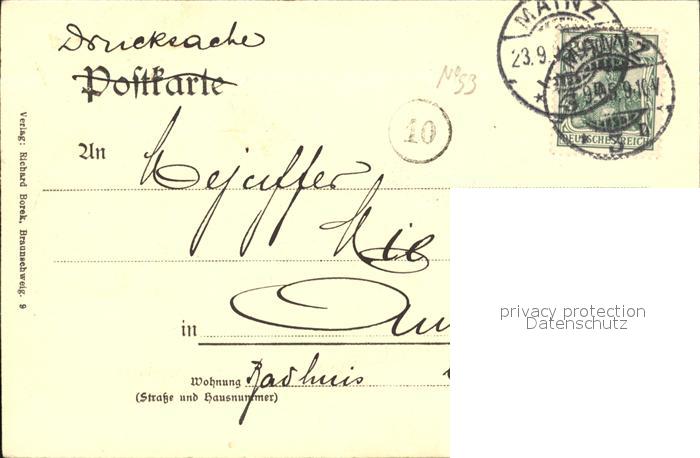 Drucksache
Postkarte
MAINZ
23.9.
MAINZ
DEUTSCHES REICH
No 53
10
An
Mejuffer
Mie
in
Wohnung Radhuis
(Straße und Hausnummer)
Verlag: Richard Borek, Braunschweig. 9
privacy protection
Datenschutz